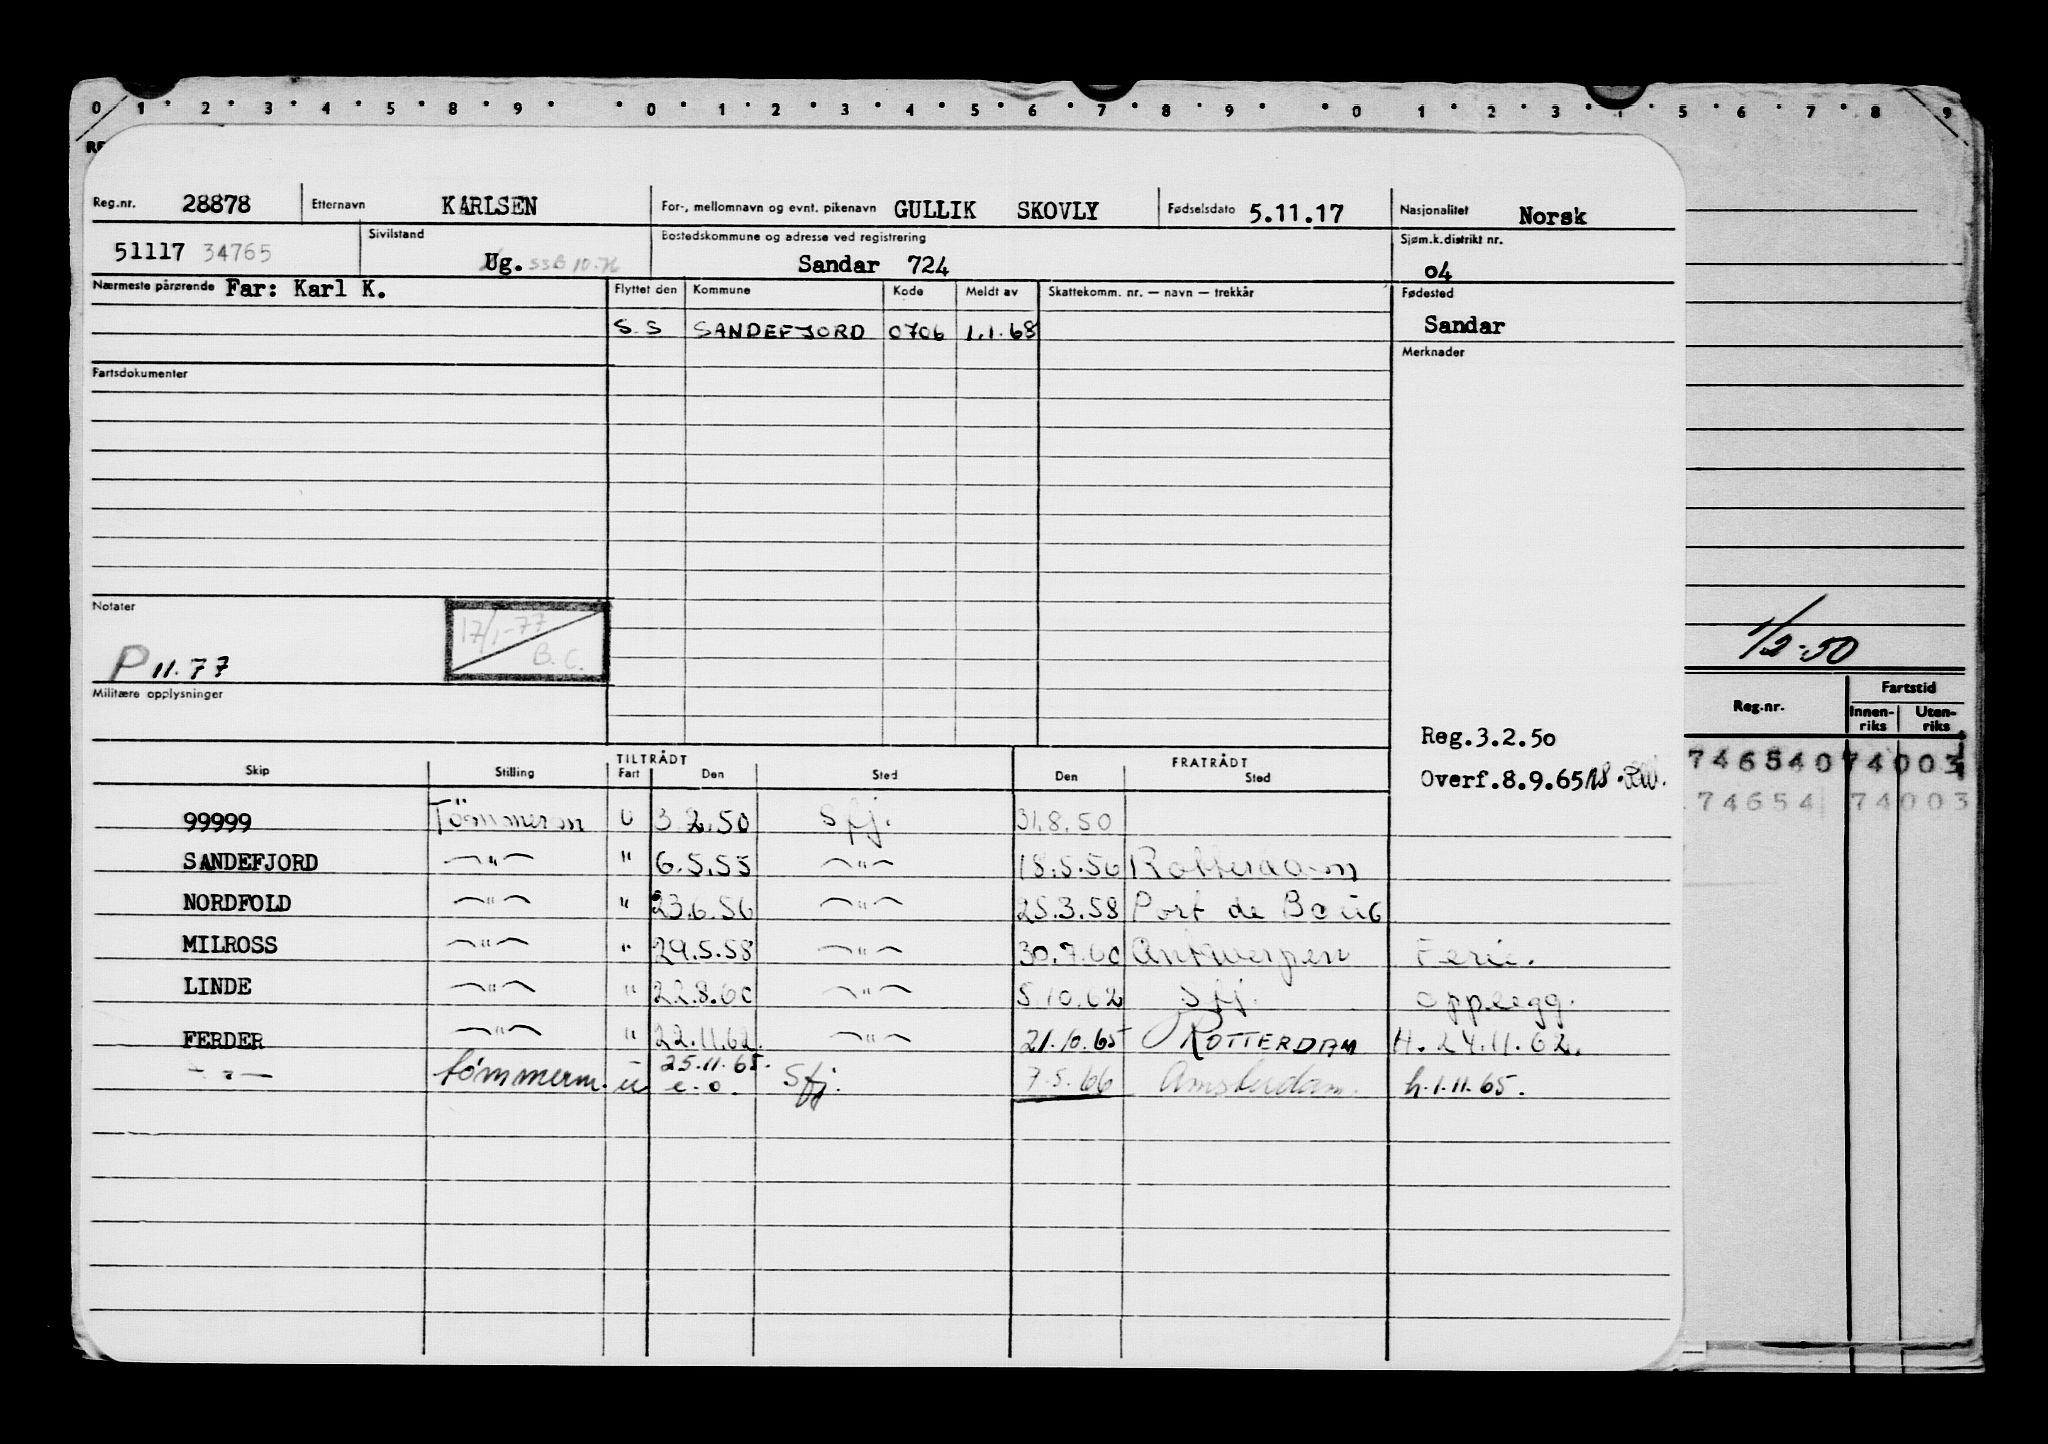 0 1 2 3 4 5 8 9 0 1 2 3 4 5 6 7 8 9 0 1 2 3 4 5 6 7 8 9
Reg.nr. 28878 Etternavn KARLSEN For-, mellomnavn og evnt. pikenavn GULLIK SKOVLY Fødselsdato 5.11.17 Nasjonalitet Norsk
51117 34765 Sivilstand Ug. SSB 10.76 Bostedskommune og adresse ved registrering Sandar 724 Sjøm.k.distrikt nr. 04
Nærmeste pårørende Far: Karl K. Flyttet den Kommune Kode Meldt av Skattekomm. nr. — navn — trekkår Fødested
S.S SANDEFJORD 0706 1.1.68 Sandar
Merknader
Fartsdokumenter
Notater
17/1-77
B.C.
P 11.77
1/2-50
Militære opplysninger
Reg.nr. Fartstid
Innen-riks Uten-riks
Reg.3.2.50
Overf.8.9.65
746540 74003
74654 74003
TILTRÅDT FRATRÅDT
Skip Stilling Fart Den Sted Den Sted
99999 Tömmerm U 3.2.50 Sfj. 31.8.50
SANDEFJORD —"— " 6.5.55 —"— 18.5.56 Rotterdam
NORDFOLD —"— " 23.6.56 —"— 25.3.58 Port de Bouc
MILROSS —"— " 29.5.58 —"— 30.7.60 Antwerpen Ferie.
LINDE —"— " 22.8.60 —"— 5.10.62 Sfj. opplegg.
FERDER —"— " 22.11.62. —"— 21.10.65 ROTTERDAM H. 24.11.62.
—"— tömmerm. u 25.11.65. e.o. Sfj. 7.5.66 Amsterdam. h.1.11.65.